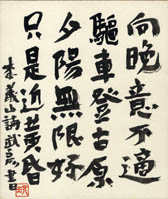 向晚意不適
驅車登古原
夕陽無限好
只是近黃昏
李義山詩